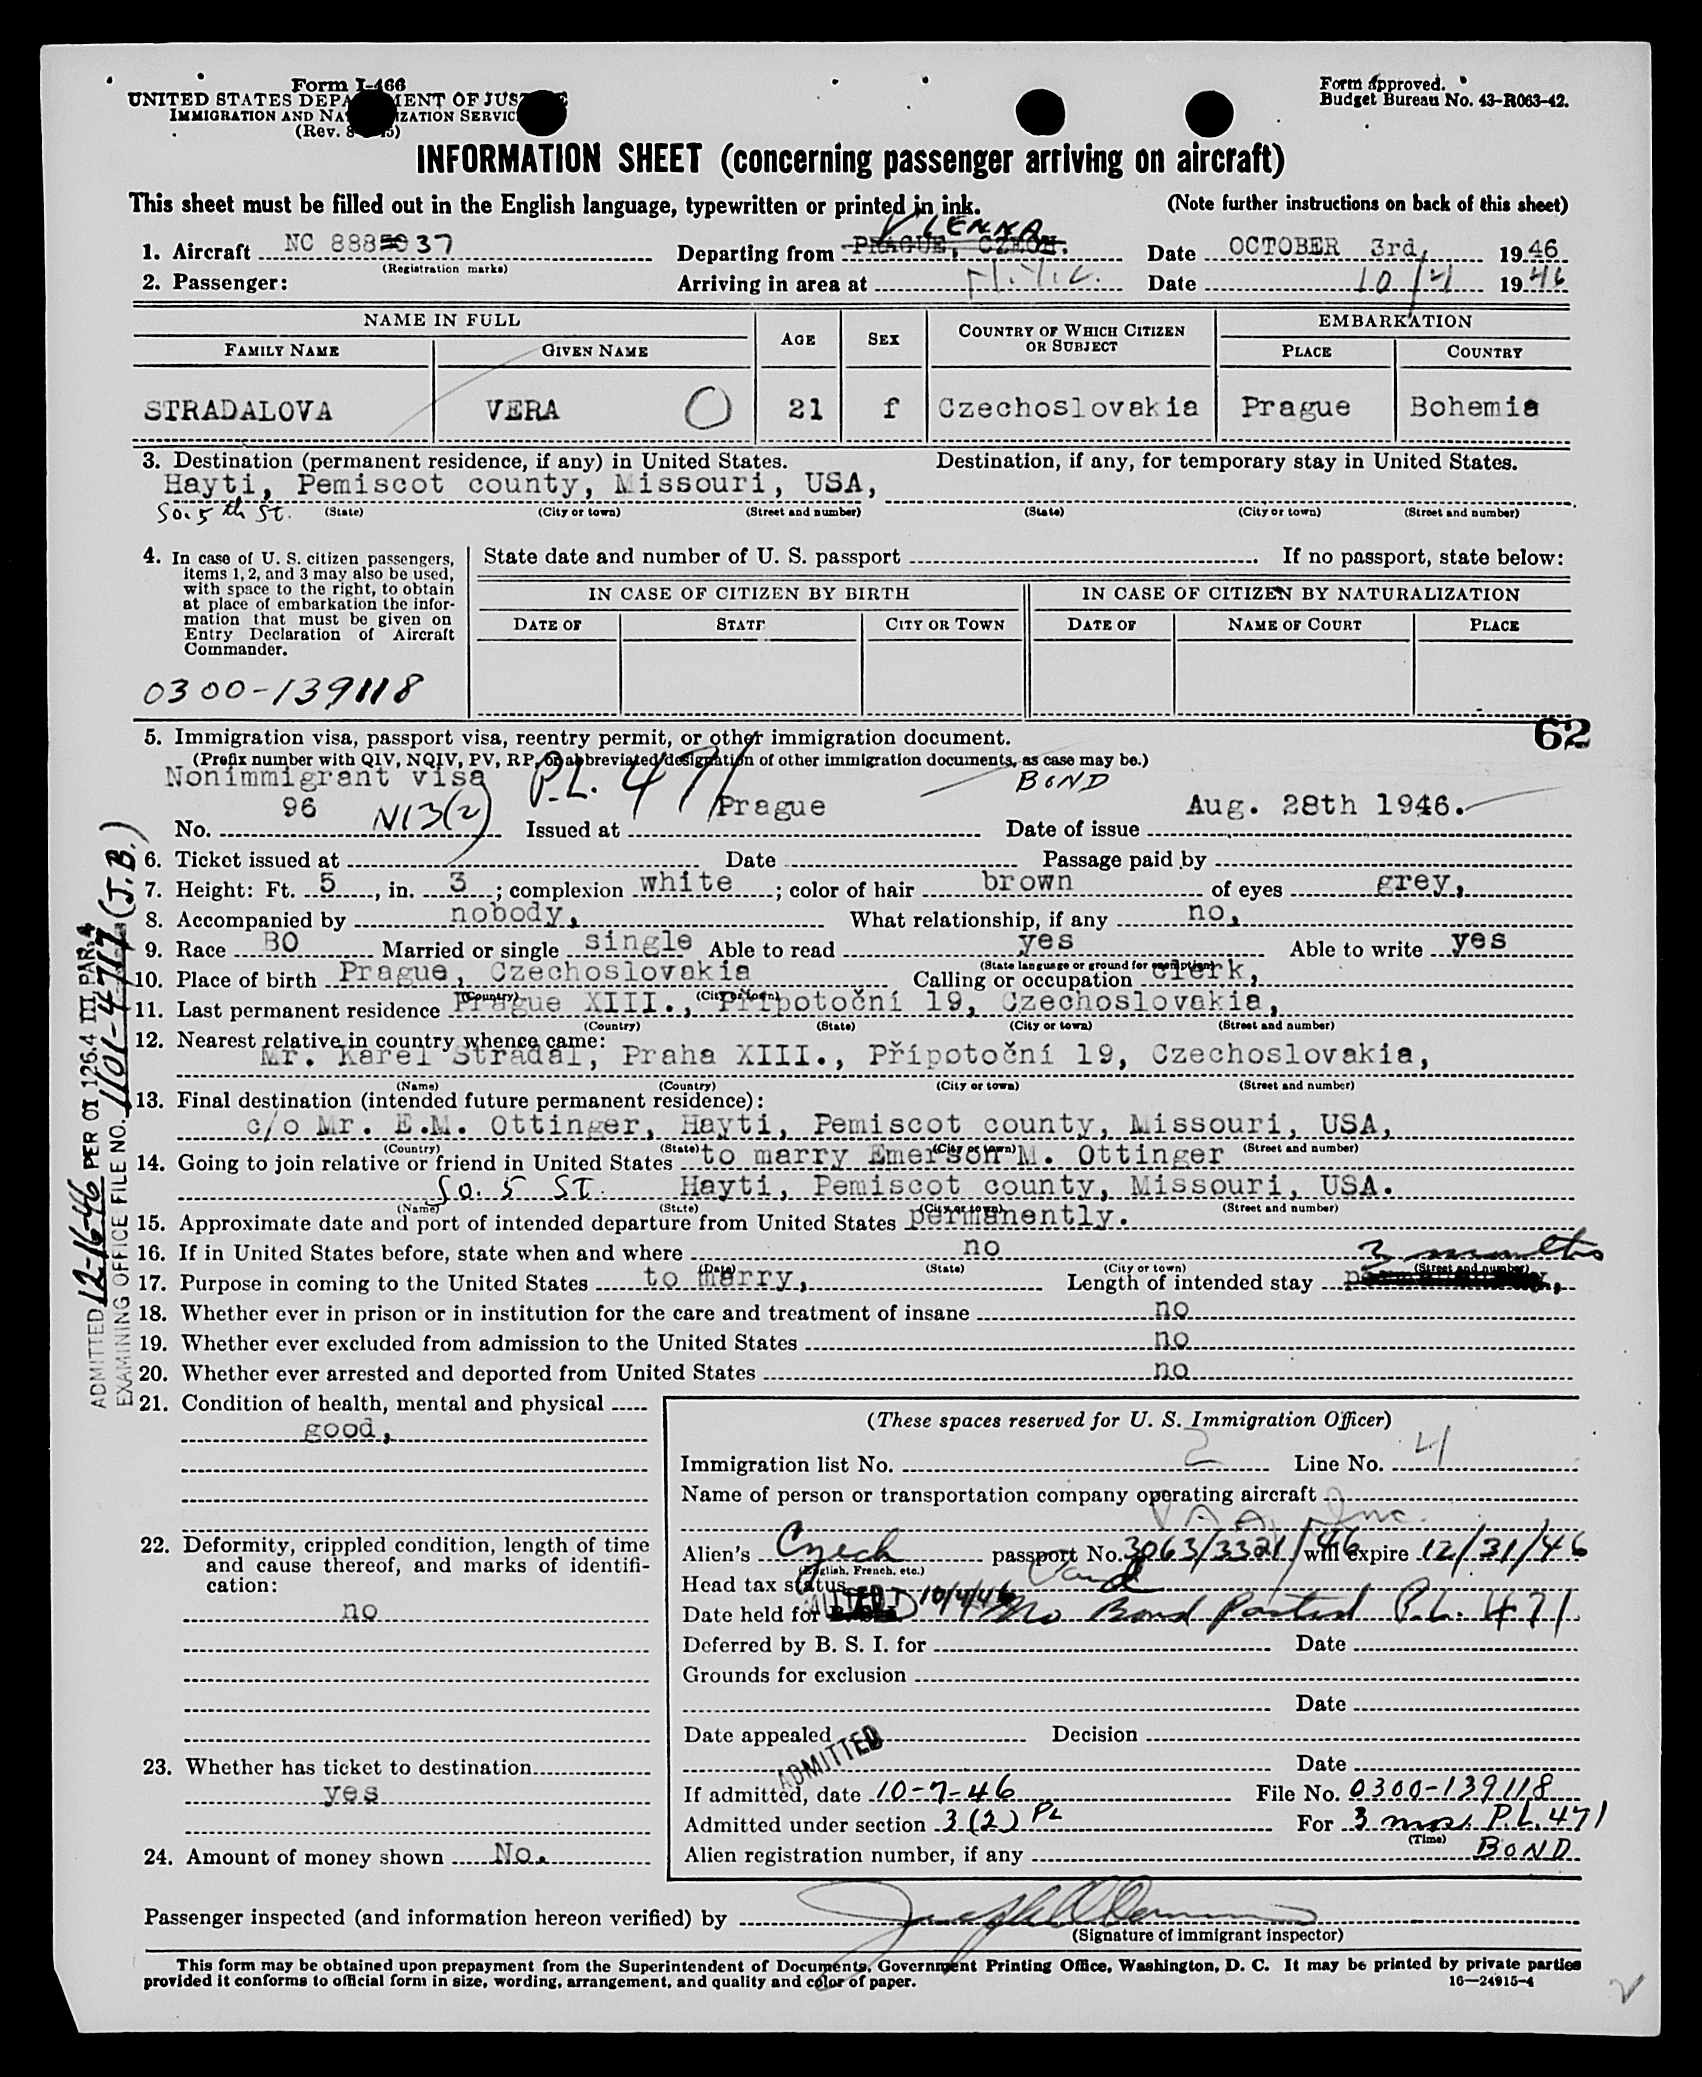 Form I-466
UNITED STATES DEPARTMENT OF JUSTICE
IMMIGRATION AND NATURALIZATION SERVICE
(Rev. 8 45)
Form approved.
Budget Bureau No. 43-R063-42.
INFORMATION SHEET (concerning passenger arriving on aircraft)
This sheet must be filled out in the English language, typewritten or printed in ink. (Note further instructions on back of this sheet)
VIENNA
1. Aircraft NC 888 37 Departing from PRAGUE, CZECH. Date OCTOBER 3rd, 1946
(Registration marks)
2. Passenger: Arriving in area at N.Y.C. Date 10/4 1946
NAME IN FULL AGE SEX COUNTRY OF WHICH CITIZEN OR SUBJECT EMBARKATION
FAMILY NAME GIVEN NAME PLACE COUNTRY
STRADALOVA VERA O 21 f Czechoslovakia Prague Bohemia
3. Destination (permanent residence, if any) in United States. Destination, if any, for temporary stay in United States.
Hayti, Pemiscot county, Missouri, USA,
So. 5th St. (State) (City or town) (Street and number) (State) (City or town) (Street and number)
4. In case of U. S. citizen passengers,
items 1, 2, and 3 may also be used,
with space to the right, to obtain
at place of embarkation the infor-
mation that must be given on
Entry Declaration of Aircraft
Commander.
0300-139118
State date and number of U. S. passport If no passport, state below:
IN CASE OF CITIZEN BY BIRTH IN CASE OF CITIZEN BY NATURALIZATION
DATE OF STATE CITY OR TOWN DATE OF NAME OF COURT PLACE
62
5. Immigration visa, passport visa, reentry permit, or other immigration document.
(Prefix number with QIV, NQIV, PV, RP, or abbreviated designation of other immigration documents, as case may be.)
Nonimmigrant visa P.L. 471 BOND
No. 96 N13(2) Issued at Prague Date of issue Aug. 28th 1946.
6. Ticket issued at Date Passage paid by
7. Height: Ft. 5, in. 3; complexion white; color of hair brown of eyes grey,
8. Accompanied by nobody, What relationship, if any no,
9. Race BO Married or single single Able to read yes Able to write yes
(State language or ground for exemption)
10. Place of birth Prague, Czechoslovakia Calling or occupation clerk,
(Country) (City or town)
11. Last permanent residence Prague XIII., Přípotoční 19, Czechoslovakia,
(Country) (State) (City or town) (Street and number)
12. Nearest relative in country whence came:
Mr. Karel Stradal, Praha XIII., Přípotoční 19, Czechoslovakia,
(Name) (Country) (City or town) (Street and number)
13. Final destination (intended future permanent residence):
c/o Mr. E.M. Ottinger, Hayti, Pemiscot county, Missouri, USA,
(Country) (State) (City or town) (Street and number)
14. Going to join relative or friend in United States to marry Emerson M. Ottinger
So. 5 ST. Hayti, Pemiscot county, Missouri, USA.
(Name) (State) (City or town) (Street and number)
15. Approximate date and port of intended departure from United States permanently.
16. If in United States before, state when and where no
(Date) (State) (City or town) (Street and number)
3 months
17. Purpose in coming to the United States to marry, Length of intended stay
18. Whether ever in prison or in institution for the care and treatment of insane no
19. Whether ever excluded from admission to the United States no
20. Whether ever arrested and deported from United States no
21. Condition of health, mental and physical
good,
22. Deformity, crippled condition, length of time
and cause thereof, and marks of identifi-
cation:
no
23. Whether has ticket to destination
yes
24. Amount of money shown No.
(These spaces reserved for U. S. Immigration Officer)
Immigration list No. 2 Line No. 4
Name of person or transportation company operating aircraft
P A A, Inc.
Alien's Czech passport No. 3063/3321/46 will expire 12/31/46
(English, French, etc.)
Head tax status
Date held for 10/4/46 No Bond Posted P.L. 471
Deferred by B. S. I. for Date
Grounds for exclusion
Date
Date appealed Decision
ADMITTED
Date
If admitted, date 10-7-46 File No. 0300-139118
Admitted under section 3(2) PL For 3 mos. P.L. 471
(Time)
Alien registration number, if any BOND
Passenger inspected (and information hereon verified) by
(Signature of immigrant inspector)
This form may be obtained upon prepayment from the Superintendent of Documents, Government Printing Office, Washington, D. C. It may be printed by private parties
provided it conforms to official form in size, wording, arrangement, and quality and color of paper. 16—24915-4
ADMITTED 12-16-46 PER OI 126.4 III PAR. 4
EXAMINING OFFICE FILE NO. 1101-4717 (J.B.)